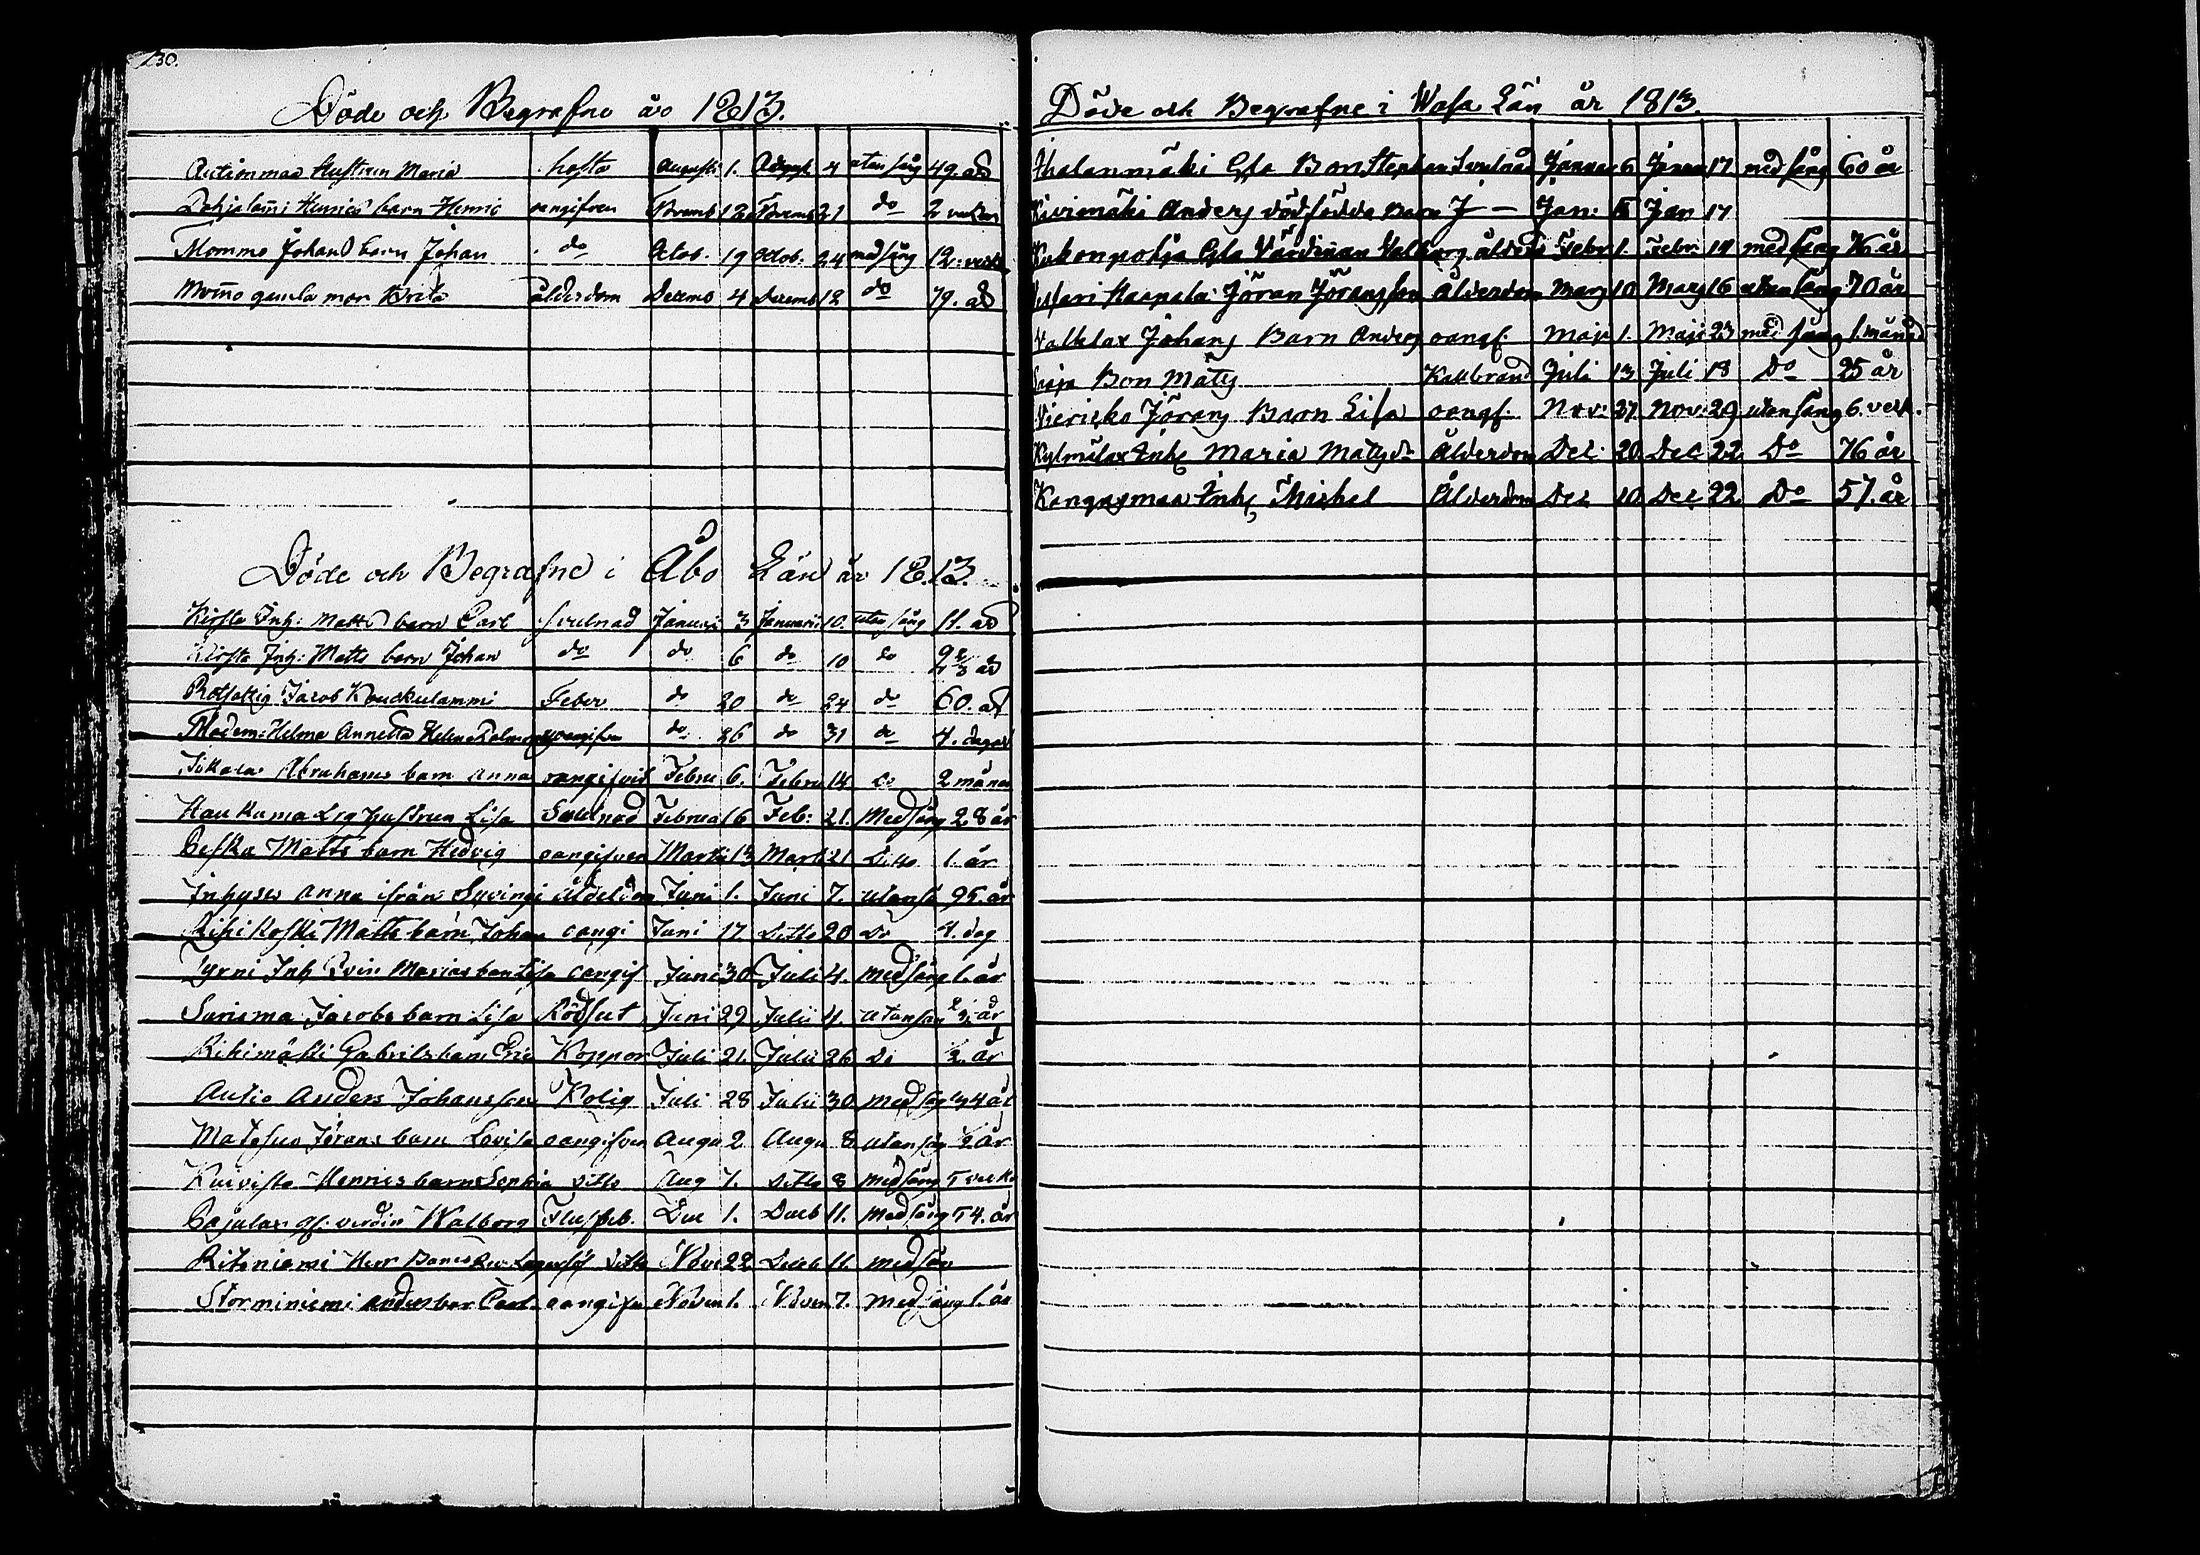 230.
Döde och Begrafne år 1813.
Autionmaa Hustrun Maria hosta Augusti 1. Augusti 4 utan sång 49. år
Henrics barn Henric oangifven 12 21 do 2 veckor
Momma Johans barn Johan do Octob. 19 Octob. 24 med sång 12. veck
Momo gamla mor Brita ålderdom Decemb 4 Decemb 12 do 79. år
Döde och Begrafne i Åbo Län år 1813.
Kirsta Inh: Matts barn Carl svulnad Januari 3 Januari 10. utan sång 11. år
Kirsta Inh: Matts barn Johan do do 6 do 10 do 2 2/3 år
Jacob Kouckulammi Feber do 20 do 24 do 60. år
Madem: Helma Annetta Helena oangifven do 26 do 31 do 4. dagar
Abrahams barn Anna oangifvit Febru 6. Febru 14 do 2 månad
Haukuma hustrun Lisa Svulnad Februa 16 Feb: 21. Med sång 28 år
Peska Matts barn Hedvig oangifven Marti 13 Marti 21 Ditto 1. år
Inhyses Anna ifrån Syvingi ålderdom Juni 1. Juni 7. utan så 95. år
Rihikoski Matts barn Johan oangi Juni 17. Ditto 20 Do 4. dag
Inh Marias barn Lisa oangif Juni 30 Juli 4. med sång 1. år
Sarisma Jacobs barn Lisa Rödsut Juni 29 Julii 4. utan sån år
Rihimäki Gabriels barn Eric Koppor Juli 21. Julii 26 Do 1/2. år
Autio Anders Johansson Kolig Juli 28 Julii 30 med sång 34 år
Jörans barn Lovisa oangifven Augu 2. Augu 8 utan sån 1/2 år
Kuivista Henrics barn Sophia ditto Aug 7. Ditto 8 med sång 5 veck
Pajulax gl. Walborg Dec 1. Deceb 11. med sång 54. år
Ritoniemi Herr ditto Nove 22 Deceb 11. med sån
Storminiemi Anders bar Carl oangifv Novem 1. Novem 7. med sång 1. år
Döde och Begrafne i Wasa Län år 1813.
Gla Bon Stephan Svulnad Januar 6 Januar 17 med sång 60 år
Kivimäki Anders dödfödda Barn 1 — Jan: Jan 17
Kukonpohja Gla Värdinnan Valborg ålderd Febr 1. Febr: 14 med sång 76 år
Haapala Jöran Jöransson Ålderdom Mars 10 Mars 16 utan sång 70 år
Valklax Johans Barn Anders oangf. Maji 1. Maji 23 med sång 1. månad
Bon Mats Kallbrand Juli 13 Juli 18 Do 25 år
Wierisko Jörans Barn Lisa oangf. Nov: 27. Nov: 29 utan sång 6. veck.
Kylmälax Enk. Maria Matsdr Ålderdom Dec: 20. Dec 22 Do 76 år
Kangasmaa Inhs Michel Ålderdom Dec 10 Dec 22 Do 57. år